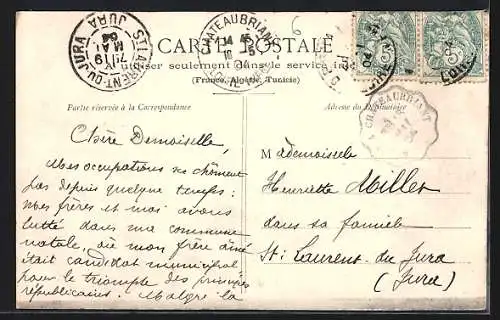 CARTE POSTALE
(France, Algérie, Tunisie)
Partie réservée à la Correspondance
Adresse du Destinataire
ST LAURENT-DU-JURA
JURA
7E 19
MAI
04
CHATEAUBRIANT
CHATEAUBRIANT
Chère Demoiselle,
Mes occupations ne chôment
pas depuis quelque temps:
Mes frères et moi avons
lutté dans ma commune
natale, où mon frère aîné
était candidat municipal
pour le triomphe des principes
républicains. Malgré la
Mademoiselle
Henriette Millet
dans sa famille
St: Laurent du Jura
(Jura)